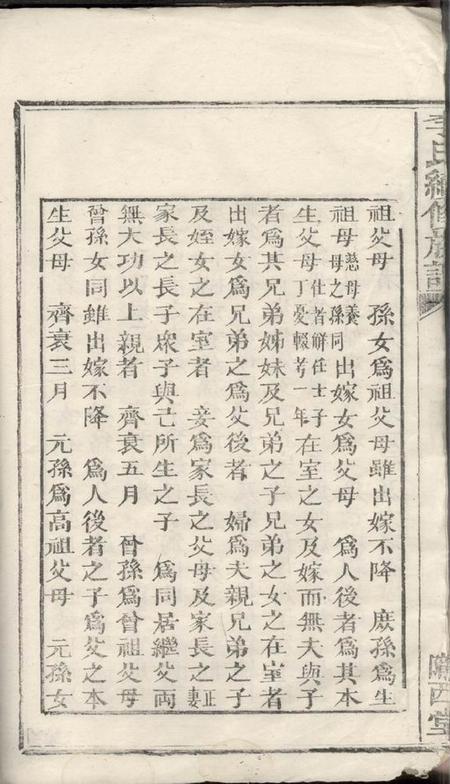 李氏續修族譜
隴西堂
祖父母　孫女爲祖父母雖出嫁不降　庶孫爲生
祖母慈母養母之孫同　出嫁女爲父母　爲人後者爲其本
生父母仕者解任士子丁憂輟考一年　在室之女及嫁而無夫與子
者爲其兄弟姊妹及兄弟之子兄弟之女之在室者
出嫁女爲兄弟之爲父後者　婦爲夫親兄弟之子
及姪女之在室者　妾爲家長之父母及家長之正妻
家長之長子衆子與己所生之子　爲同居繼父兩
無大功以上親者　齊衰五月　曾孫爲曾祖父母
曾孫女同雖出嫁不降　爲人後者之子爲父之本
生父母　齊衰三月　元孫爲高祖父母　元孫女